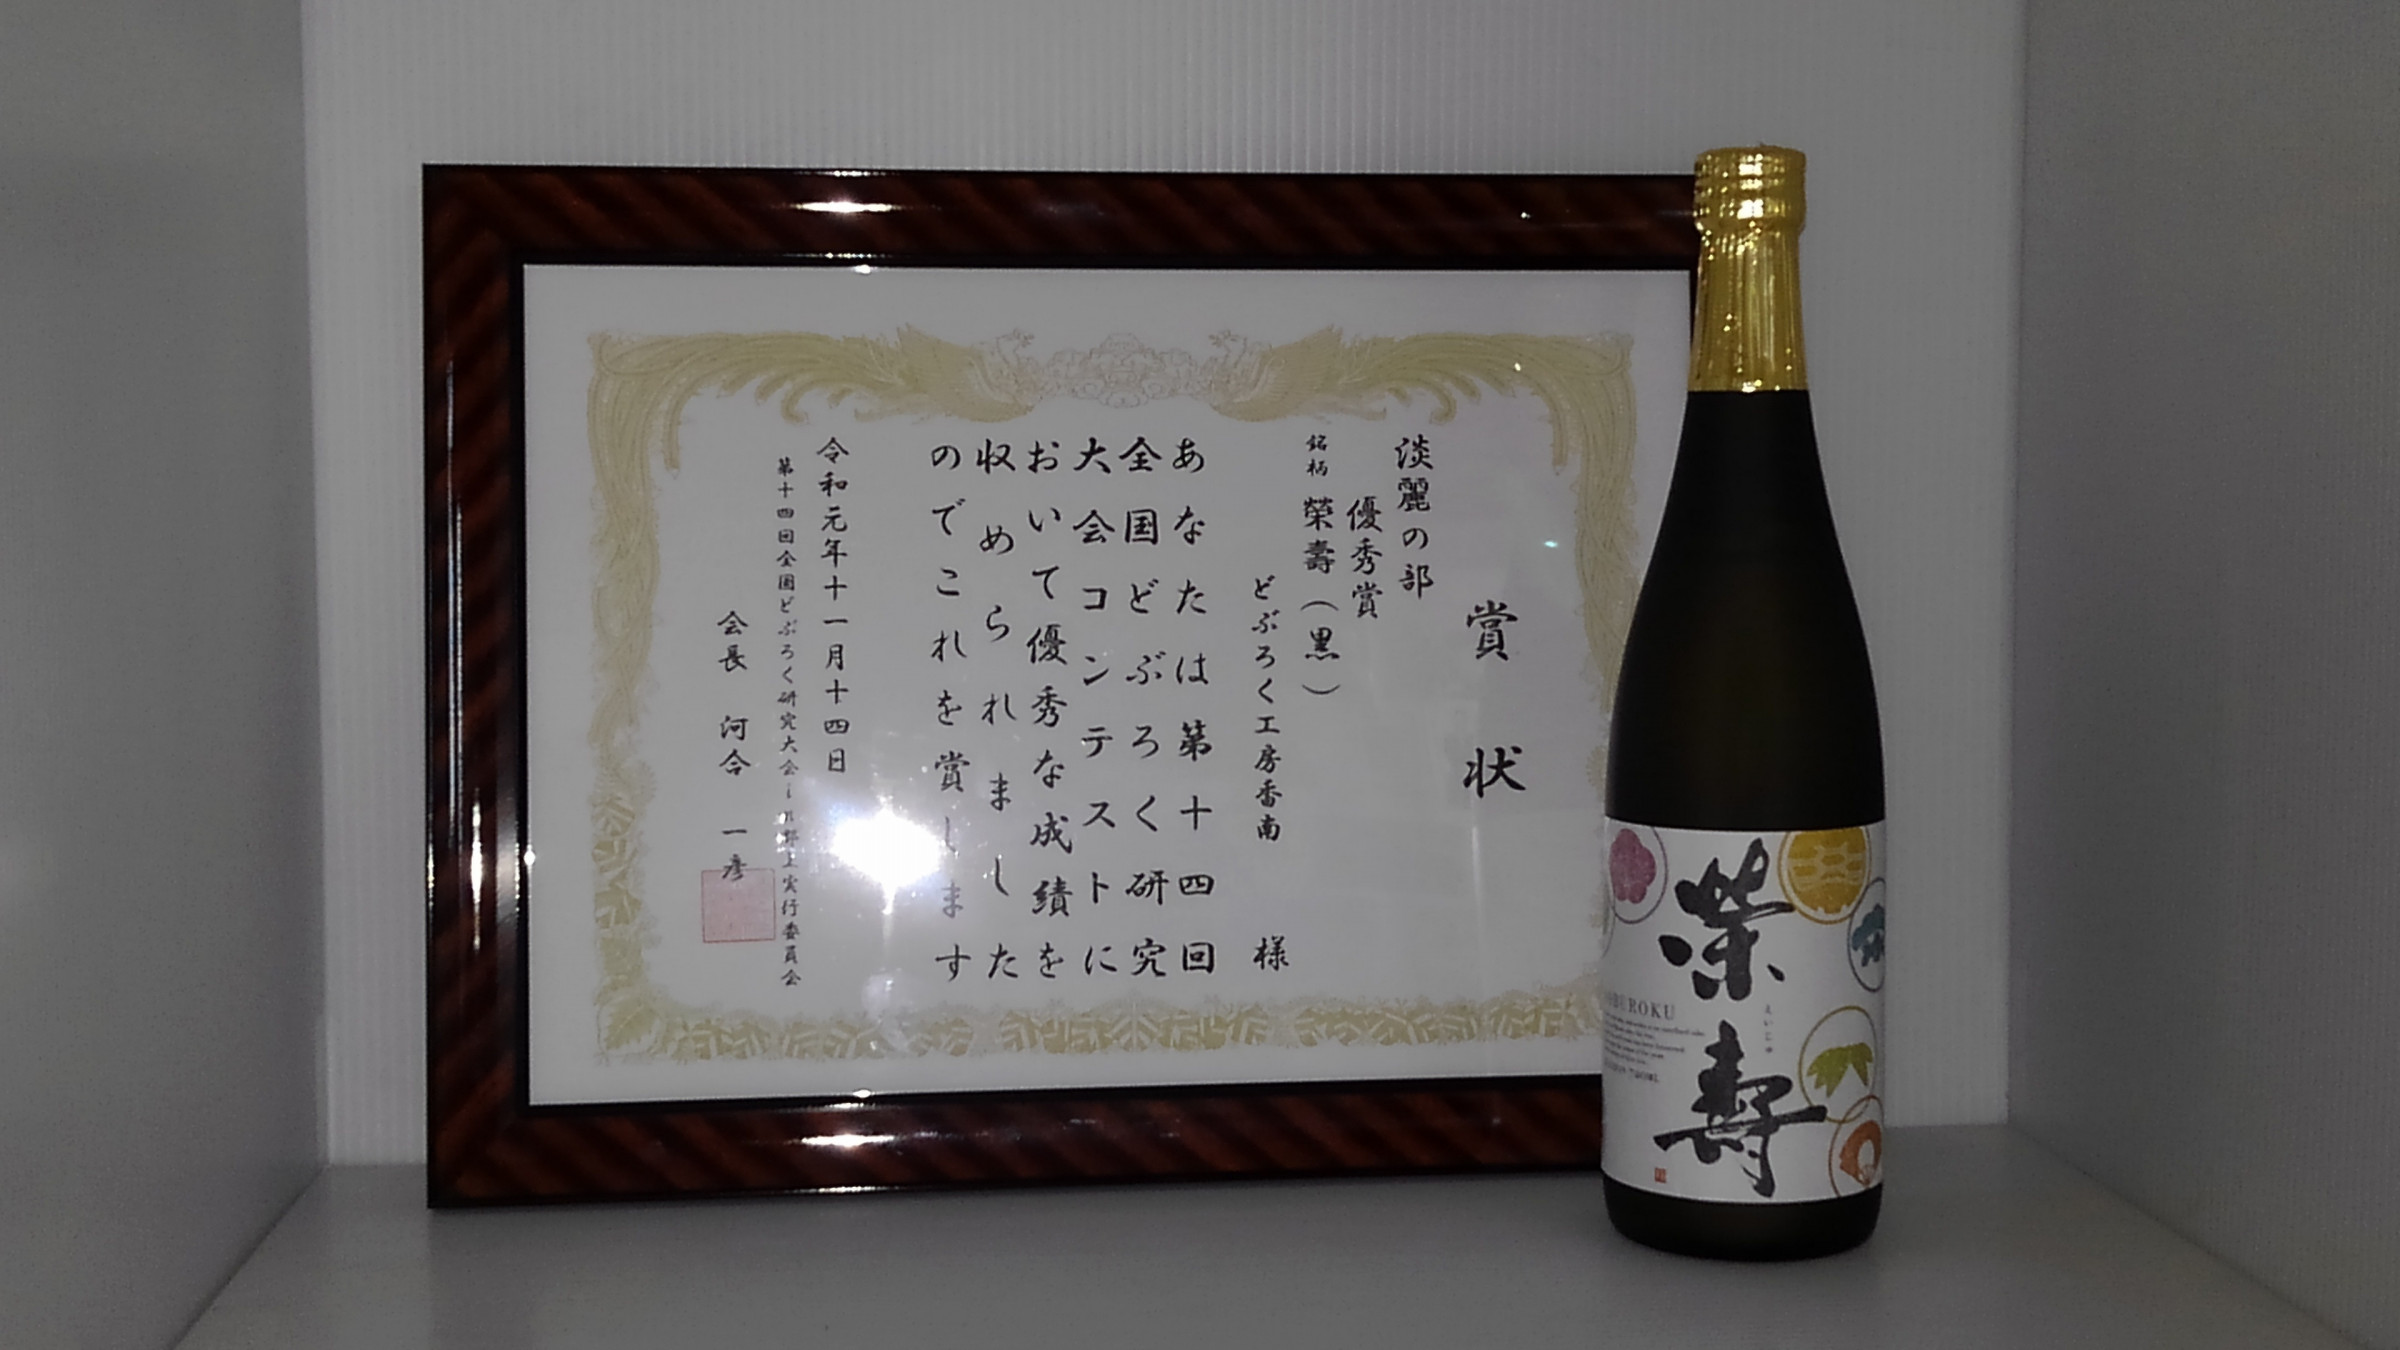 賞状
淡麗の部
優秀賞
銘柄 榮壽(黒)
どぶろく工房香南 様
あなたは第十四回
全国どぶろく研究
大会コンテストに
おいて優秀な成績を
収められました
のでこれを賞します
令和元年十一月十四日
第十四回全国どぶろく研究大会 実行委員会
会長 河合 一彦
榮壽
えいじゅ